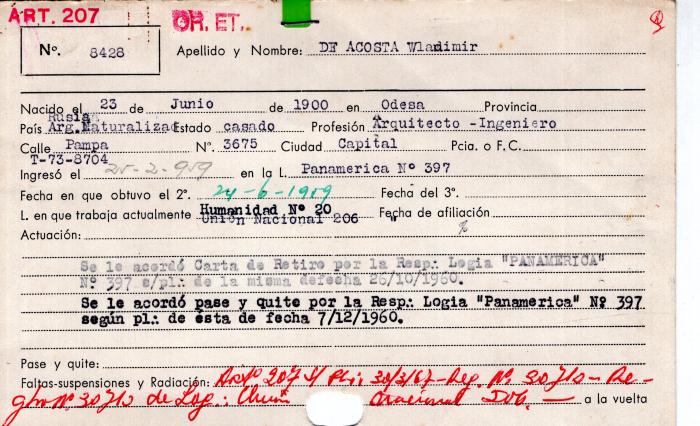 ART. 207
OR. ET.
Nº. 8428
Apellido y Nombre: DE ACOSTA Wladimir
Nacido el 23 de Junio de 1900 en Odesa Provincia
Rusia
País Arg.Naturalizad Estado casado Profesión Arquitecto -Ingeniero
Calle Pampa Nº. 3675 Ciudad Capital Pcia. o F.C.
T-73-8704
Ingresó el 25-2-959 en la L. Panamerica Nº 397
Fecha en que obtuvo el 2º. 24-6-1959 Fecha del 3º.
L. en que trabaja actualmente Humanidad Nº 20 Fecha de afiliación
Unión Nacional 206 "
Actuación:
Se le acordó Carta de Retiro por la Resp∴ Logia "PANAMERICA"
Nº 397 s/pl∴ de la misma defecha 26/10/1960.
Se le acordó pase y quite por la Resp∴ Logia "Panamerica" Nº 397
según pl∴ de ésta de fecha 7/12/1960.
Pase y quite:
Faltas-suspensiones y Radiación: Artº 207 s/ Pl: 30/3/67-Reg. Nº 30710-Re-
Nº 30710 de Log: Unión Nacional 206. a la vuelta